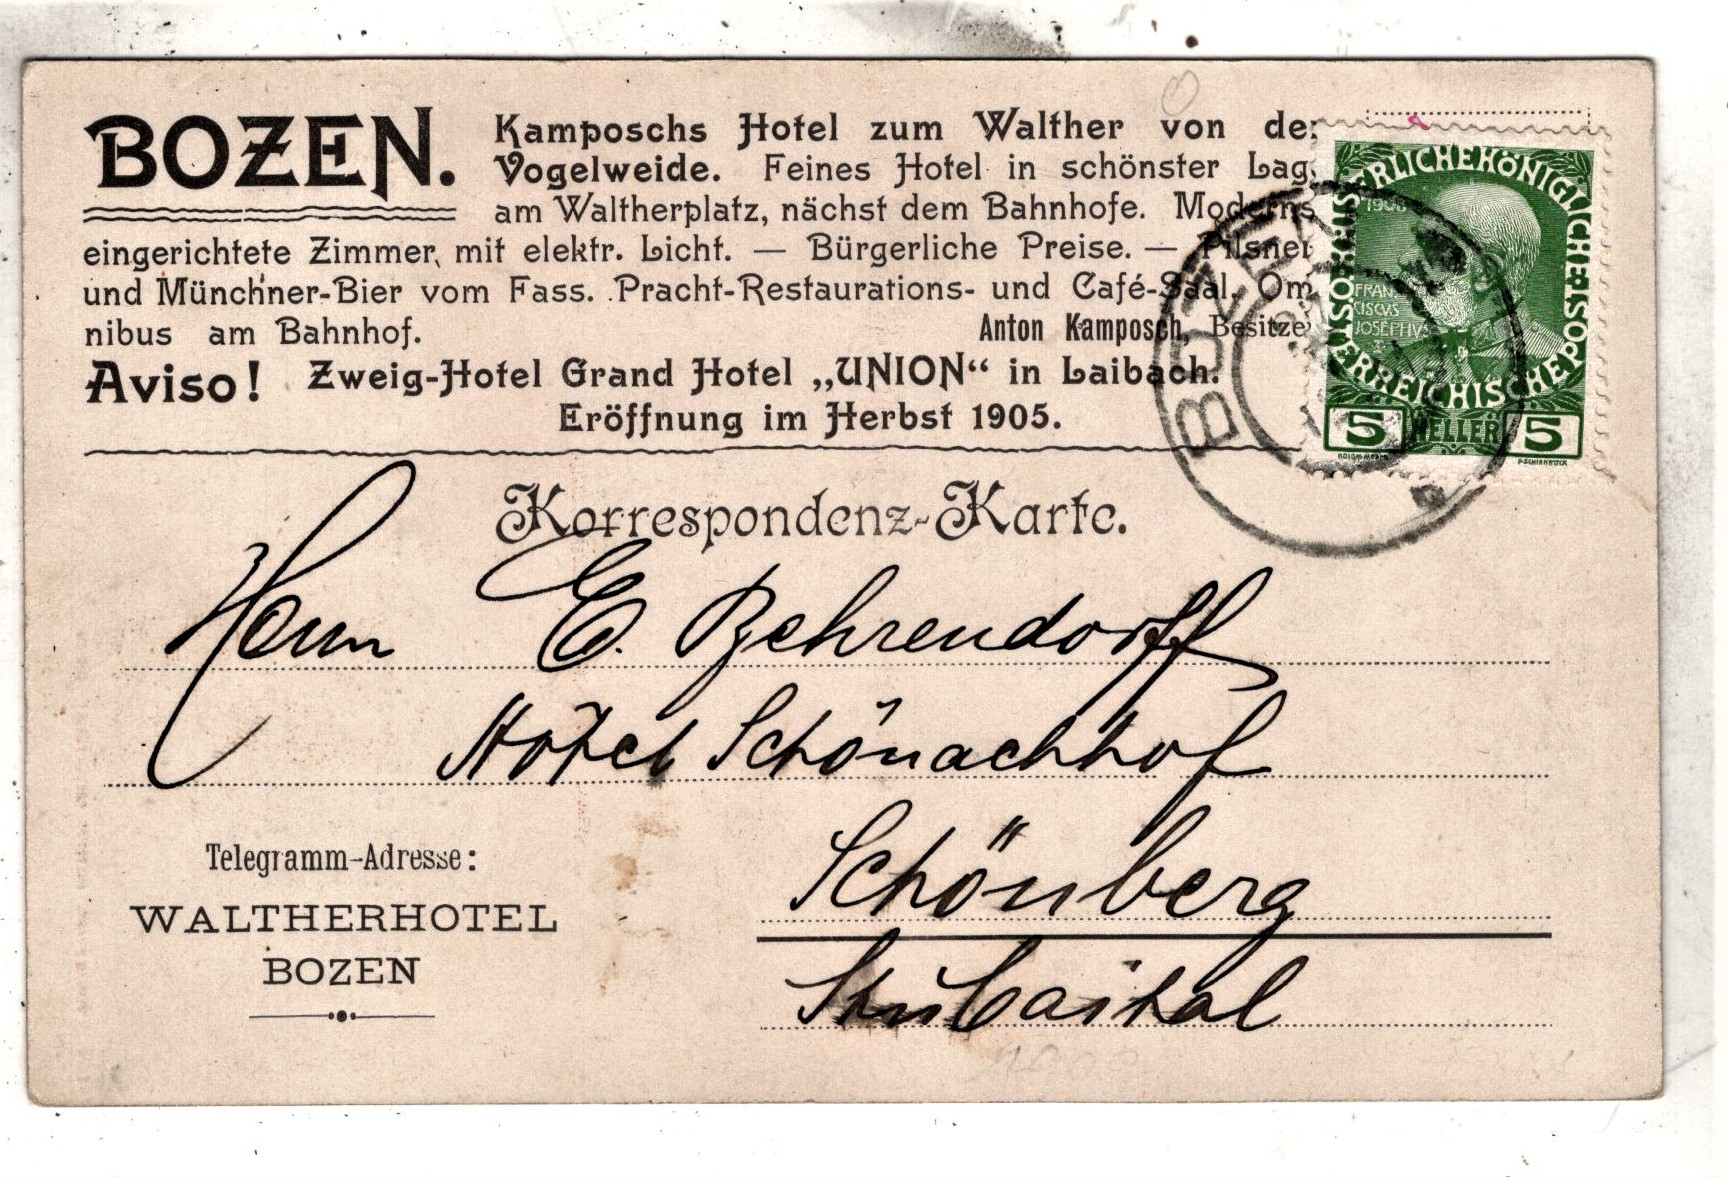 BOZEN.
Kamposchs Hotel zum Walther von der
Vogelweide. Feines Hotel in schönster Lag
am Waltherplatz, nächst dem Bahnhofe. Moderns
eingerichtete Zimmer, mit elektr. Licht. — Bürgerliche Preise. — Pilsner
und Münchner-Bier vom Fass. Pracht-Restaurations- und Café-Saal. Om
nibus am Bahnhof. Anton Kamposch, Besitze
Aviso! Zweig-Hotel Grand Hotel „UNION“ in Laibach.
Eröffnung im Herbst 1905.
KAISERLICHE KÖNIGLICHE ÖSTERREICHISCHE POST
1908
FRAN
CISCVS
JOSEPHVS
I
5 HELLER 5
KOLOM·MOSER
F·SCHIRNBÖCK
BOZEN
Korrespondenz-Karte.
Herrn E. Behrendorff
Hotel Schönachhof
Schönberg
Stubaital
Telegramm-Adresse:
WALTHERHOTEL
BOZEN